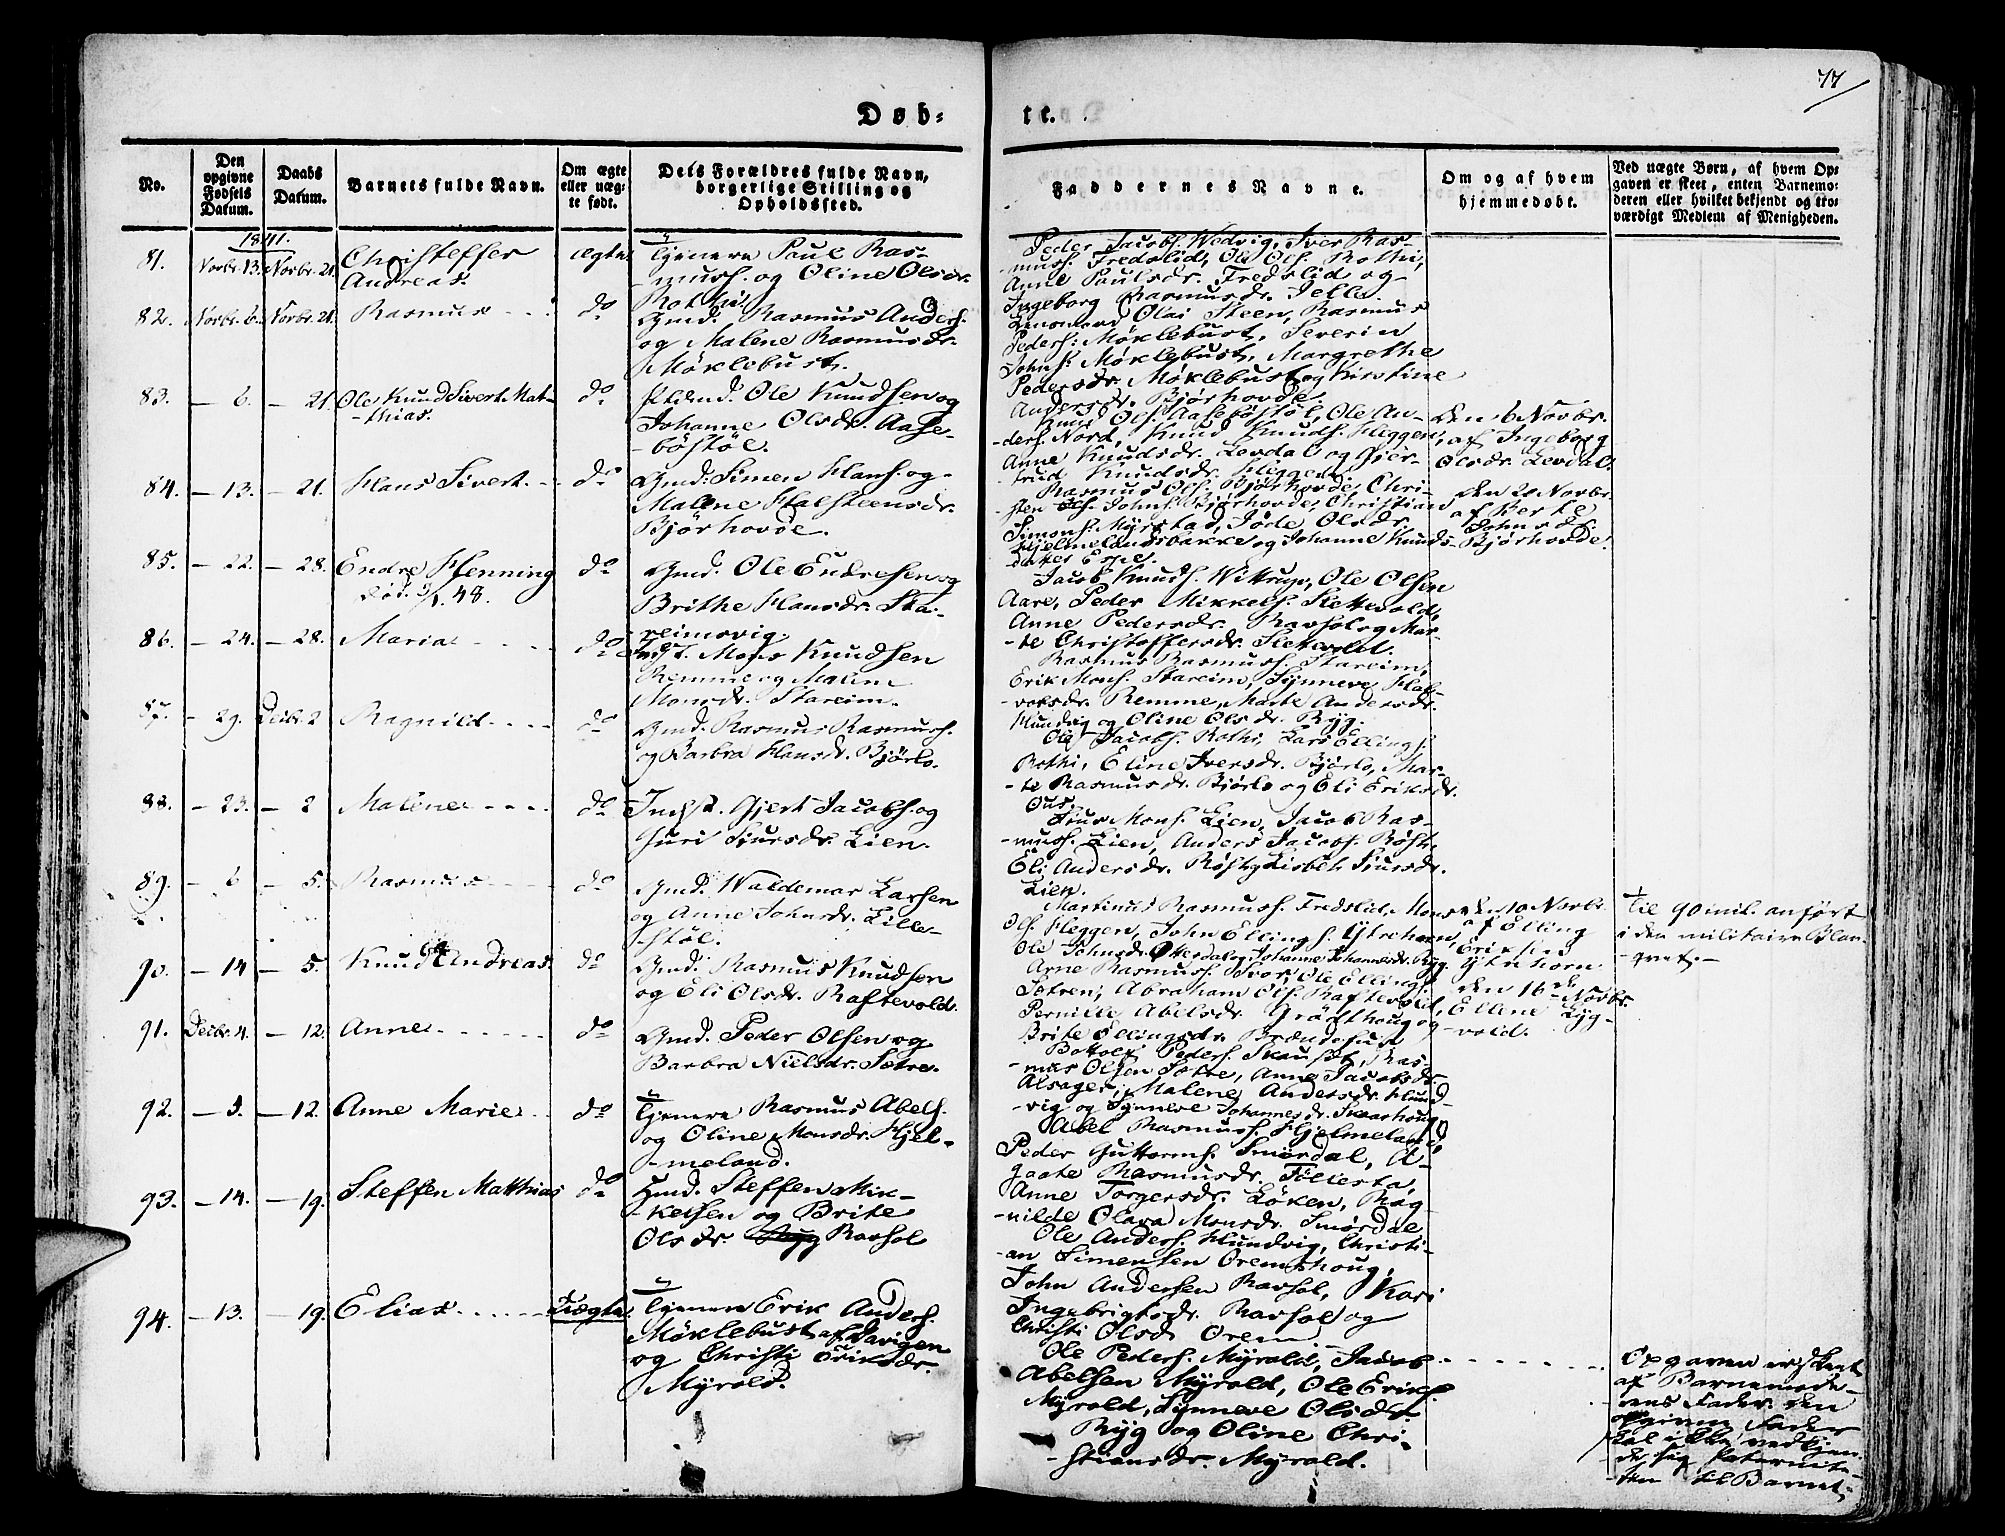 77
Døb-
te.
No.
Den opgivne Fødsels Datum.
Daabs Datum.
Barnets fulde Navn.
Om ægte eller uæg-
te født.
Dets Forældres fulde Navn,
borgerlige Stilling og
Opholdssted.
Faddernes Navne.
Om og af hvem
hjemmedøbt.
Ved uægte Børn, af hvem Op-
gaven er skeet, enten Barnemo-
deren eller hvilket bekjendt og tro-
værdigt Medlem af Menigheden.
1841.
81. Novbr. 13. Novbr. 21. Christeffer
Andreas.
ægte
Tjenere Paul Ras-
muss. og Oline Olsdr.
Rothi
Peder Jacobs. Wedvig, Iver Ras-
-muss. Fredslid, Ole Ols. Rothi,
Anne Paulsdr. Fredslid og
Ingeborg Rasmusdr. Jelle.
82. Novbr. 6. Novbr. 21. Rasmus
do
Gmd. Rasmus Anders.
og Malene Rasmusdr.
Møklebust.
Olai Steen, Rasmus
Peders. Møklebust, Severin
Johns. Møklebust, Margrethe
Pedersdr. Møklebust og Kirstine
Andersdr. Bjørhovde.
83. - 6. - 21. Ole Knud Sivert Mat-
-thias.
do
Pldsmd. Ole Knudsen og
Johanne Olsdr. Aase-
-bøstøl.
Knud Ols. Aasebøstøl, Ole An-
-ders. Nord, Knud Knuds. Heggen,
Anne Knudsdr. Levdal og Gjer-
-trud Knudsdr. Heggen.
Den 6 Novbr.
af Ingeborg
Olsdr. Levdal.
84. - 13. - 21. Hans Sivert.
do
Gmd. Simen Hans. og
Malene Halsteensdr.
Bjørhovde.
Rasmus Ols. Bjørhovde, Chri-
-sten Johns. Bjørhovde, Christian
Simons. Myrstad, Jøde Olsdr.
Hjelmelandsbakke og Johanne Knuds-
datter Espe.
Den 20 Novbr.
af Berte
Johnsdr.
Bjørhovde.
85. - 22. - 28. Endre Henning
død 48.
do
Gmd. Ole Endresen og
Brithe Hansdr. Sta-
reimsvig.
Jacob Knuds. Wittrup, Ole Olsen
Aare, Peder Mikkels. Slettevold,
Anne Pedersdr. Ravsol og Mar-
-te Christoffersdr. Slettevold.
86. - 24. - 28. Maria
do
Mons Knudsen
Remme og Malene
Monsdr. Stareim.
Rasmus Rasmuss. Stareim,
Erik Mons. Stareim, Synneve Hal-
-vorsdr. Remme, Marte Andersdr.
Hundvig og Oline Olsdr. Ryg.
87. - 29. Decbr. 2 Ragnild
do
Gmd. Rasmus Rasmuss.
og Barbra Hansdr. Bjørlo.
Ole Jacobs. Rothi, Lars Ellings.
Rothi, Eline Iversdr. Bjørlo, Mar-
-te Rasmusdr. Bjørlo og Eli Eriksdr.
Ous.
88. - 23. - 2 Malene
do
Indst. Gjert Jacobs. og
Guri Siursdr. Lien.
Siur Mons. Lien, Jacob Ras-
-muss. Lien, Anders Jacobs. Røste,
Eli Andersdr. Røst og Lisbeth Siursdr.
Lien.
89. - 6 - 5. Rasmus
do
Gmd. Waldemar Larsen
og Anne Johnsdr. Lille-
-støl.
Martinus Rasmuss. Fredslid, Mons
Ols. Heggen, John Ellings. Ytrehorn,
Ole Johnsdr. Otterdal og Johanne Johannesdr. Ryg.
Den 10 Novbr.
af Elling
Eriksen
Ytrehorn.
Til 90 mil. anført
i den militaire Blan-
-qvet.
90. - 14 - 5. Knud Andreas.
do
Gmd. Rasmus Knudsen
og Eli Olsdr. Raftevold.
Arne Rasmuss. Svor, Ole Ellings.
Sætren, Abraham Ols. Raftevold,
Pernille Abelsdr. Grødthoug og
Brite Ellingsdr. Brændefur
Den 16de Novbr.
Ellene Lyg-
-vold.
91. Decbr. 4. - 12. Anne
do
Gmd. Peder Olsen og
Barbra Nielsdr. Sætre.
Bottolf Peders. Skausøt, Ras-
-mus Olsen Sætre, Anne Jacobsdr.
Alsager, Malene Andersdr. Hund-
-vig og Synneve Johannesdr. Skaarhoug.
92. - 5. - 12. Anne Marie
do
Tjenere Rasmus Abels.
og Oline Monsdr. Hjel-
-meland.
Abel Rasmuss. Hjelmeland,
Peder Guttorms. Smørdal, A-
gaate Rasmusdr. Tøllesta,
Anne Torgersdr. Løken, Rag-
-nilde Olava Monsdr. Smørdal
93. - 14. - 19. Steffen Matthias
do
Gmd. Steffen Mik-
-kelsen og Brite
Olsdr. Ryg Ravsol
Ole Anders. Hundvig, Christi-
-an Simensen Oremshoug,
John Andersen Ravsol, Kari
Ingebrigtsdr. Ravsol og
Christi Olsd. Orem
94. - 13. - 19. Elias
Uægte
Tjenere Erik Anders.
Møklebust af Davigen
og Christi Eriksdr.
Myrold.
Ole Peders. Myrold, Jacob
Abelsen Myrold, Ole Eriks.
Myrold, Synneve Olsdr.
Ryg og Oline Chri-
-stiansdr. Myrold.
Opgaven er skeet
af Barnemode-
-rens Fader. Den
opgivne Fader
skal ikke vedkjen-
-de sig Paternite-
-ten til Barnet.